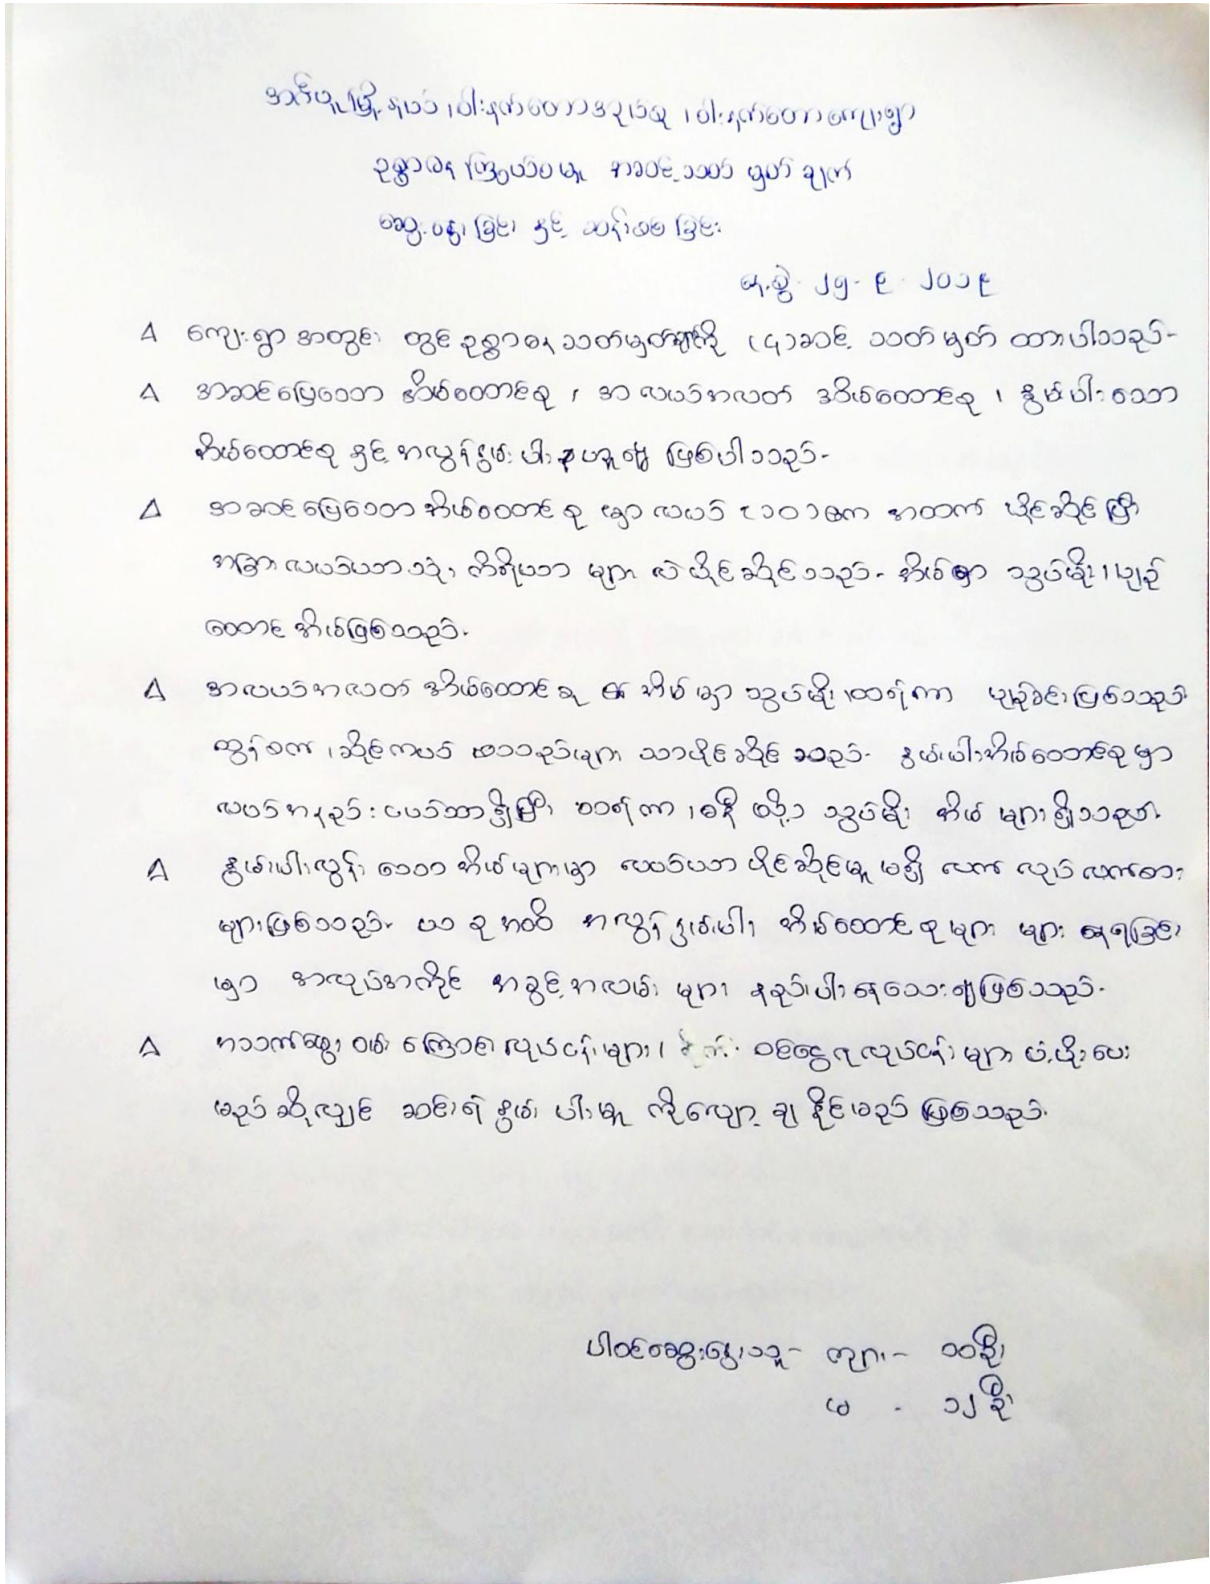 အင်္ဂပူမြို့နယ် ၊ ဝါးနက်တောအုပ်စု ၊ ဝါးနက်တောကျေးရွာ
ဥစ္စာဓန ကြွယ်ဝမှု အဆင့်သတ် မှတ် ချက်
ဆွေးနွေးခြင်း နှင့် ဆန်းစစ်ခြင်း
နေ့စွဲ - ၂၅ - ၉ - ၂၀၁၉
Δ ကျေးရွာ အတွင်း တွင် ဥစ္စာဓန သတ်မှတ်ချက်ကို (၄)ဆင့် သတ် မှတ် ထားပါသည်-
Δ အဆင်ပြေသော အိမ်ထောင်စု ၊ အလယ်အလတ် အိမ်ထောင်စု ၊ နွမ်းပါးသော
အိမ်ထောင်စု နှင့် အလွန်နွမ်းပါး ဟူ၍ ဖြစ်ပါသည်-
Δ အဆင်ပြေသော အိမ်ထောင်စု မှာ လယ် ၁၀ ဧက အထက် ပိုင်ဆိုင်ပြီး
အခြား လယ်ယာသုံး ကိရိယာ များ လဲ ပိုင်ဆိုင်သည်- အိမ်မှာ သွပ်မိုး ၊ ပျဉ်
ထောင် အိမ်ဖြစ်သည်-
Δ အလယ်အလတ် အိမ်ထောင်စု ၏ အိမ် မှာ သွပ်မိုး ၊ ထရံကာ ပျဉ်ခင်း ဖြစ်သည်
ထွန်စက် ၊ ဆိုင်ကယ် စသည်များ သာပိုင်ဆိုင် သည်- နွမ်းပါးအိမ်ထောင်စုမှာ
လယ်အနည်းငယ်သာရှိပြီး ထရံကာ ၊ ဓနိ သို့ သွပ်မိုး အိမ် များ ရှိသည်
Δ နွမ်းပါးလွန်း သော အိမ်များမှာ လယ်ယာ ပိုင်ဆိုင်မှု မရှိ လက် လုပ် လက်စား
များဖြစ်သည်- ယခုအထိ အလွန် နွမ်းပါး အိမ်ထောင်စုများ များ နေရခြင်း
မှာ အလုပ်အကိုင် အခွင့်အလမ်း များ နည်းပါးနေသေး၍ဖြစ်သည်-
Δ အသက်မွေး ဝမ်းကြောင်း လုပ်ငန်းများ ၊ ဝင်ငွေရလုပ်ငန်း များ ပံ့ပိုးပေး
မည် ဆိုလျှင် ဆင်းရဲ နွမ်း ပါးမှု ကိုလျော့ ချ နိုင်မည် ဖြစ်သည်-
ပါဝင်ဆွေးနွေးသူ - ကျား - ၁၀ဦး
မ - ၁၂ ဦး